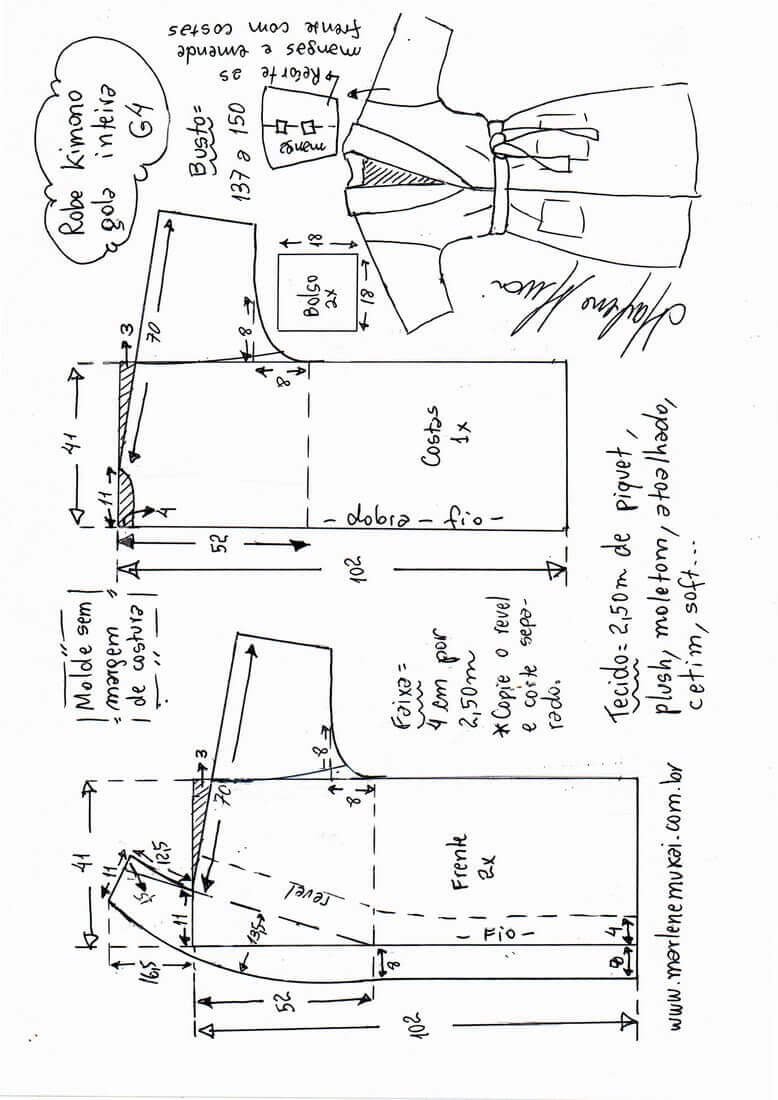 Robe Kimono
gola inteira
G4
Busto=
137 a 150
manga
→ Recorte as
mangas e emende
frente com costas
18
Bolso
2x
18
41
3
70
8
8
11
4
52
102
Costas
1x
- dobra - fio -
Molde sem
= margem =
de costura
41
11
12,5
1,5
3
70
8
8
11
16,5
13,5
revel
52
102
8
Frente
2x
- Fio -
4
8
Faixa=
4 cm por
2,50m
*Copie o revel
e corte sepa-
rado.
Tecido= 2,50m de piquet,
plush, moletom, atoalhado,
cetim, soft...
Marlene Mukai
www.marlenemukai.com.br